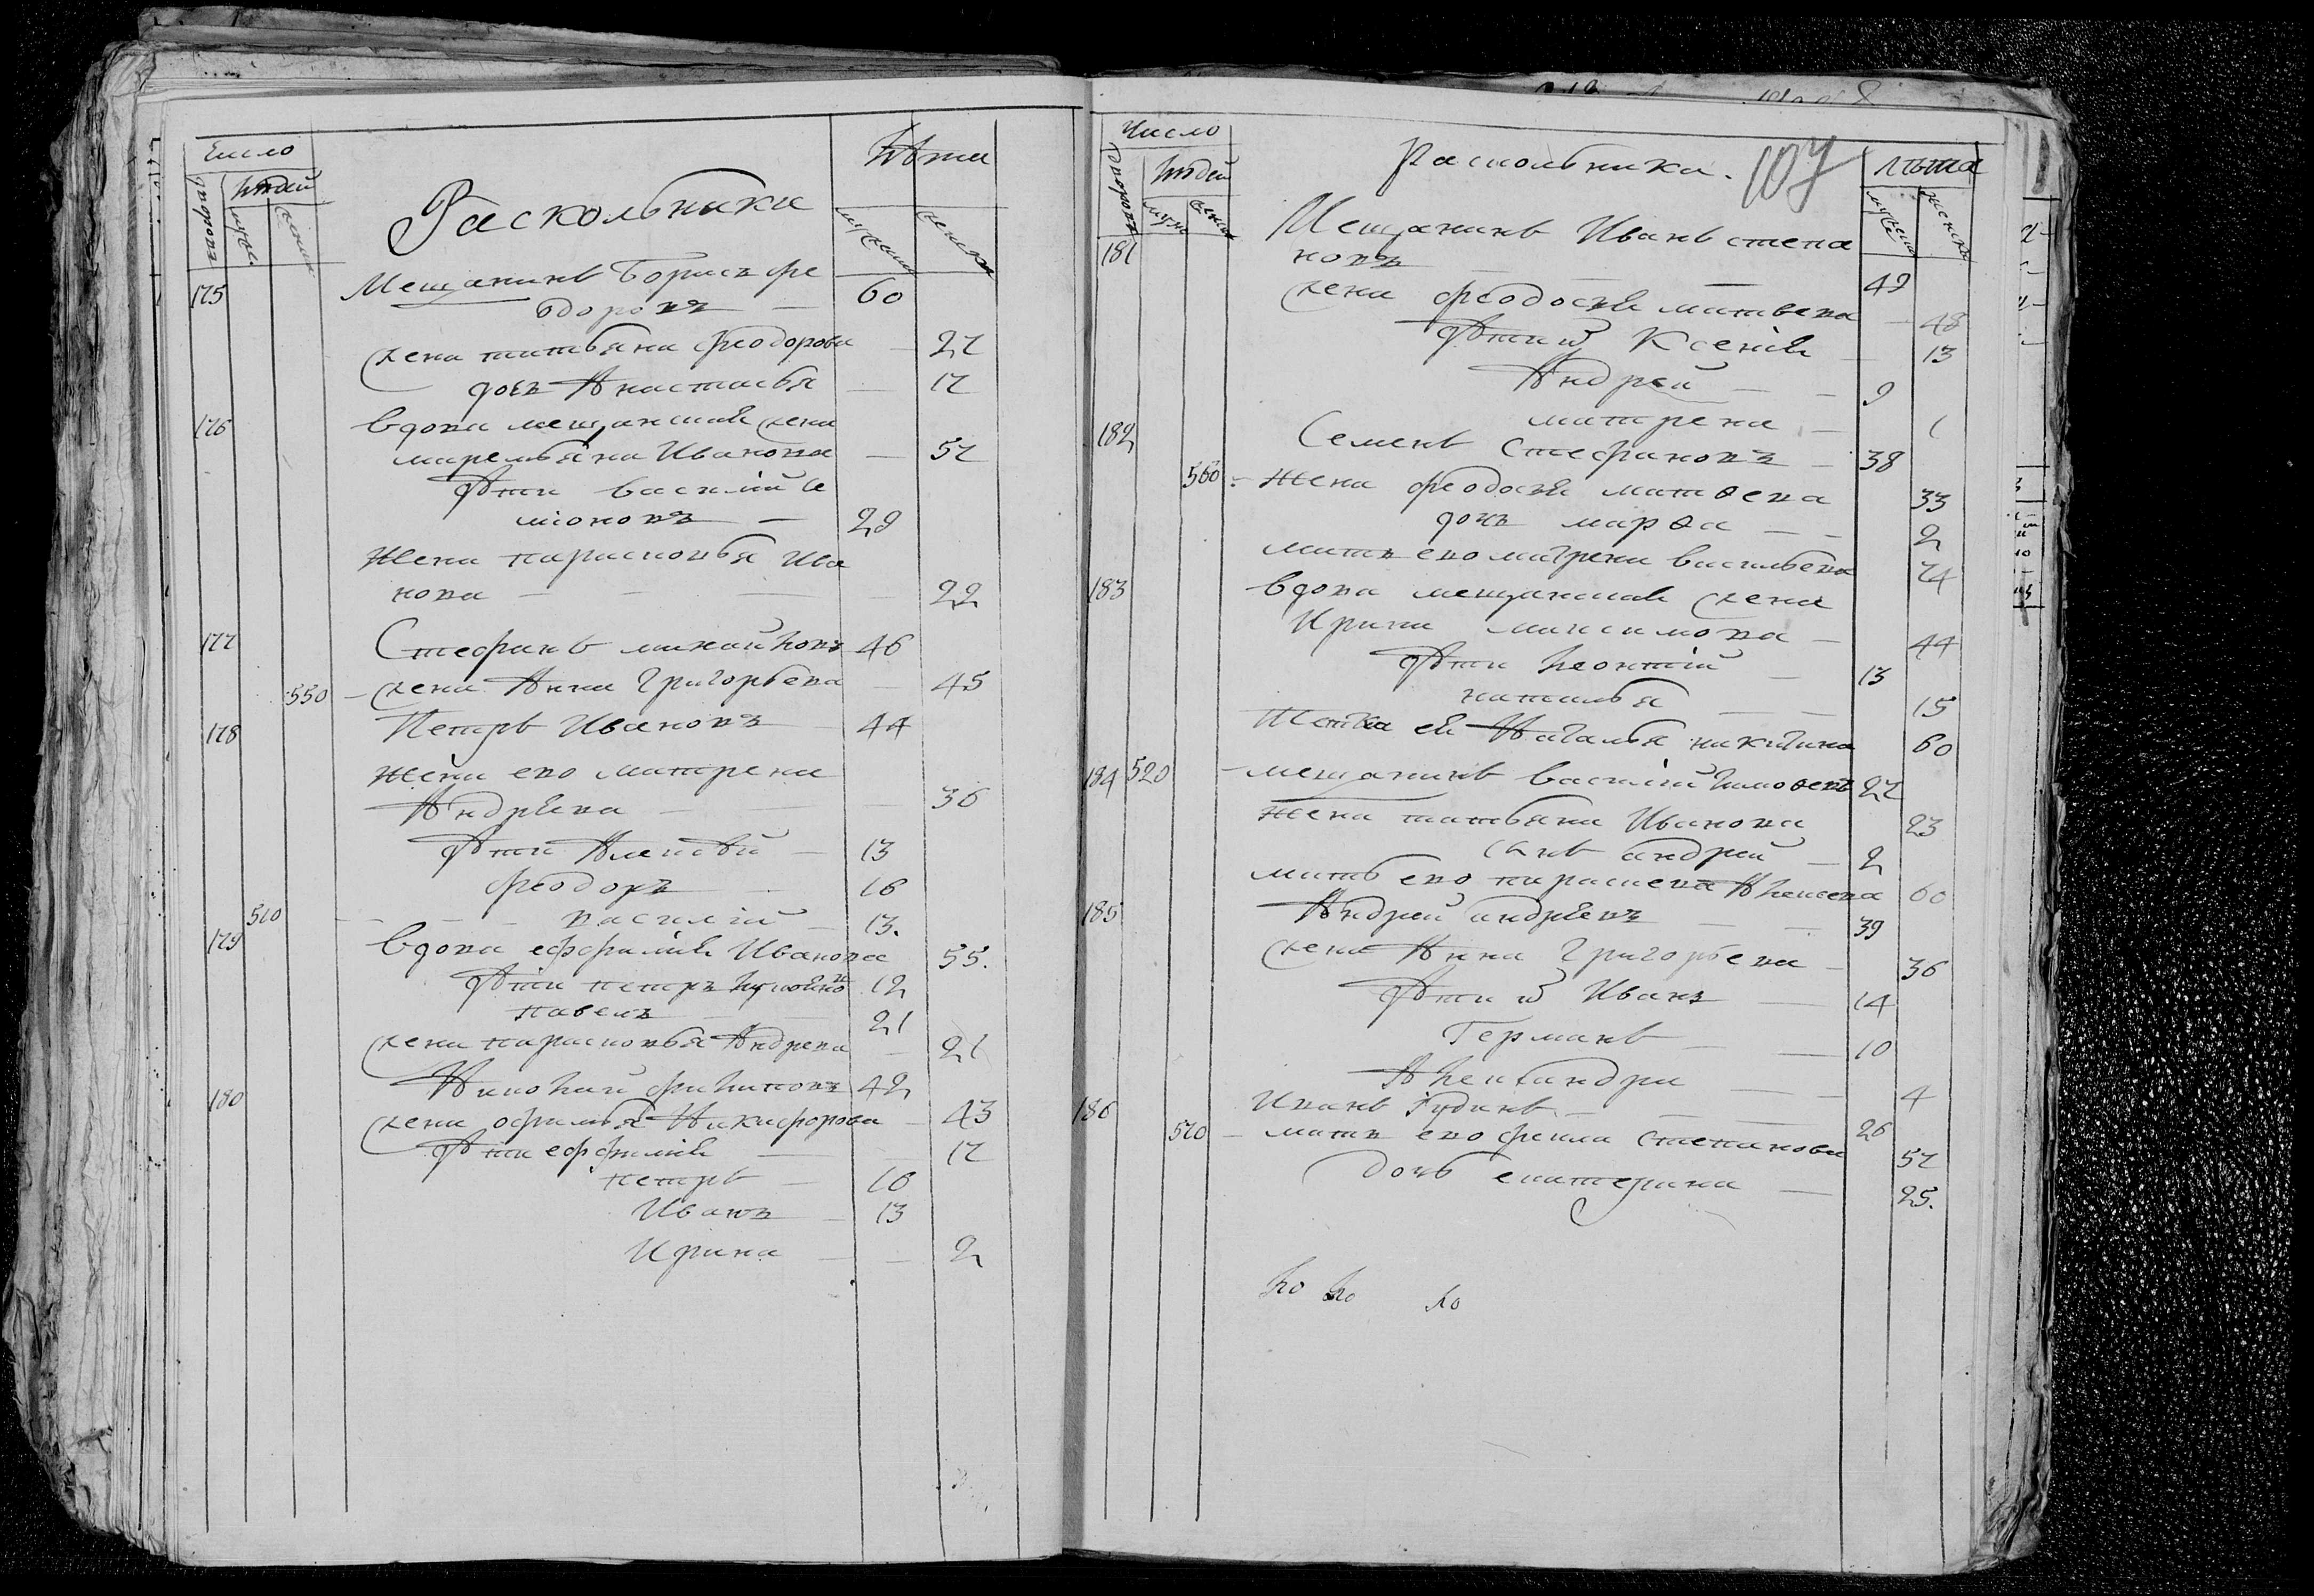 Число
Людей
дворовъ
Лѣта
Раскольники
175 Мещанинъ Борисъ Фе
одоровъ — 60
жена татьяна феодорова — 27
дочь Анастасья — 17
176 вдова мещанская жена
маремьяна Иванова — 57
Дѣти василий се
мионовъ — 29
жена парасковья Ива
нова — 22
177 Стефанъ михайловъ 46
550 – жена Анна Григорьева — 45
178 Петръ Ивановъ 44
жена ево матрена
Андрѣева — 36
Дѣти Алексѣй — 13
феодоръ — 16
510 — василій — 13.
179 вдова ефимія Иванова 55.
Дѣти петръ 12
павелъ — 21
жена парасковья Андрева — 21
180 филиповъ 42
жена офимья Никифорова — 43
Дѣти ефимія — 17
петръ — 16
Иванъ — 13
Ирина — 2
Число
Людей
дворовъ
Раскольники.
107
лѣта
181 Мещанинъ Иванъ степа
новъ — 49
жена феодосія матвеева — 48
Дѣти их Ксенія — 13
Андрей — 9
матрена — 1
182 Семенъ Стефановъ — 38
560 – жена феодосія матѳеева 33
дочь марѳа — 2
мать ево матрена васильева 74
183 вдова мещанская жена
Ирина максимова — 44
Дѣти леонтій — 13
наталья — 15
тетка ея Наталья никитина 60
184 520 – мещанинъ василій тимоѳеевъ 27
жена татьяна Иванова 23
сынъ андрей — 2
мать ево Алексеева 60
185 Андрей андрѣевъ — 39
жена Анна Григорьева — 36
Дѣти их Иванъ — 14
Германъ — 10
Александра — 4
186 Иванъ — 26
570 – мать ево фекла степанова 57
дочь екатерина — 25.
ло ло ло